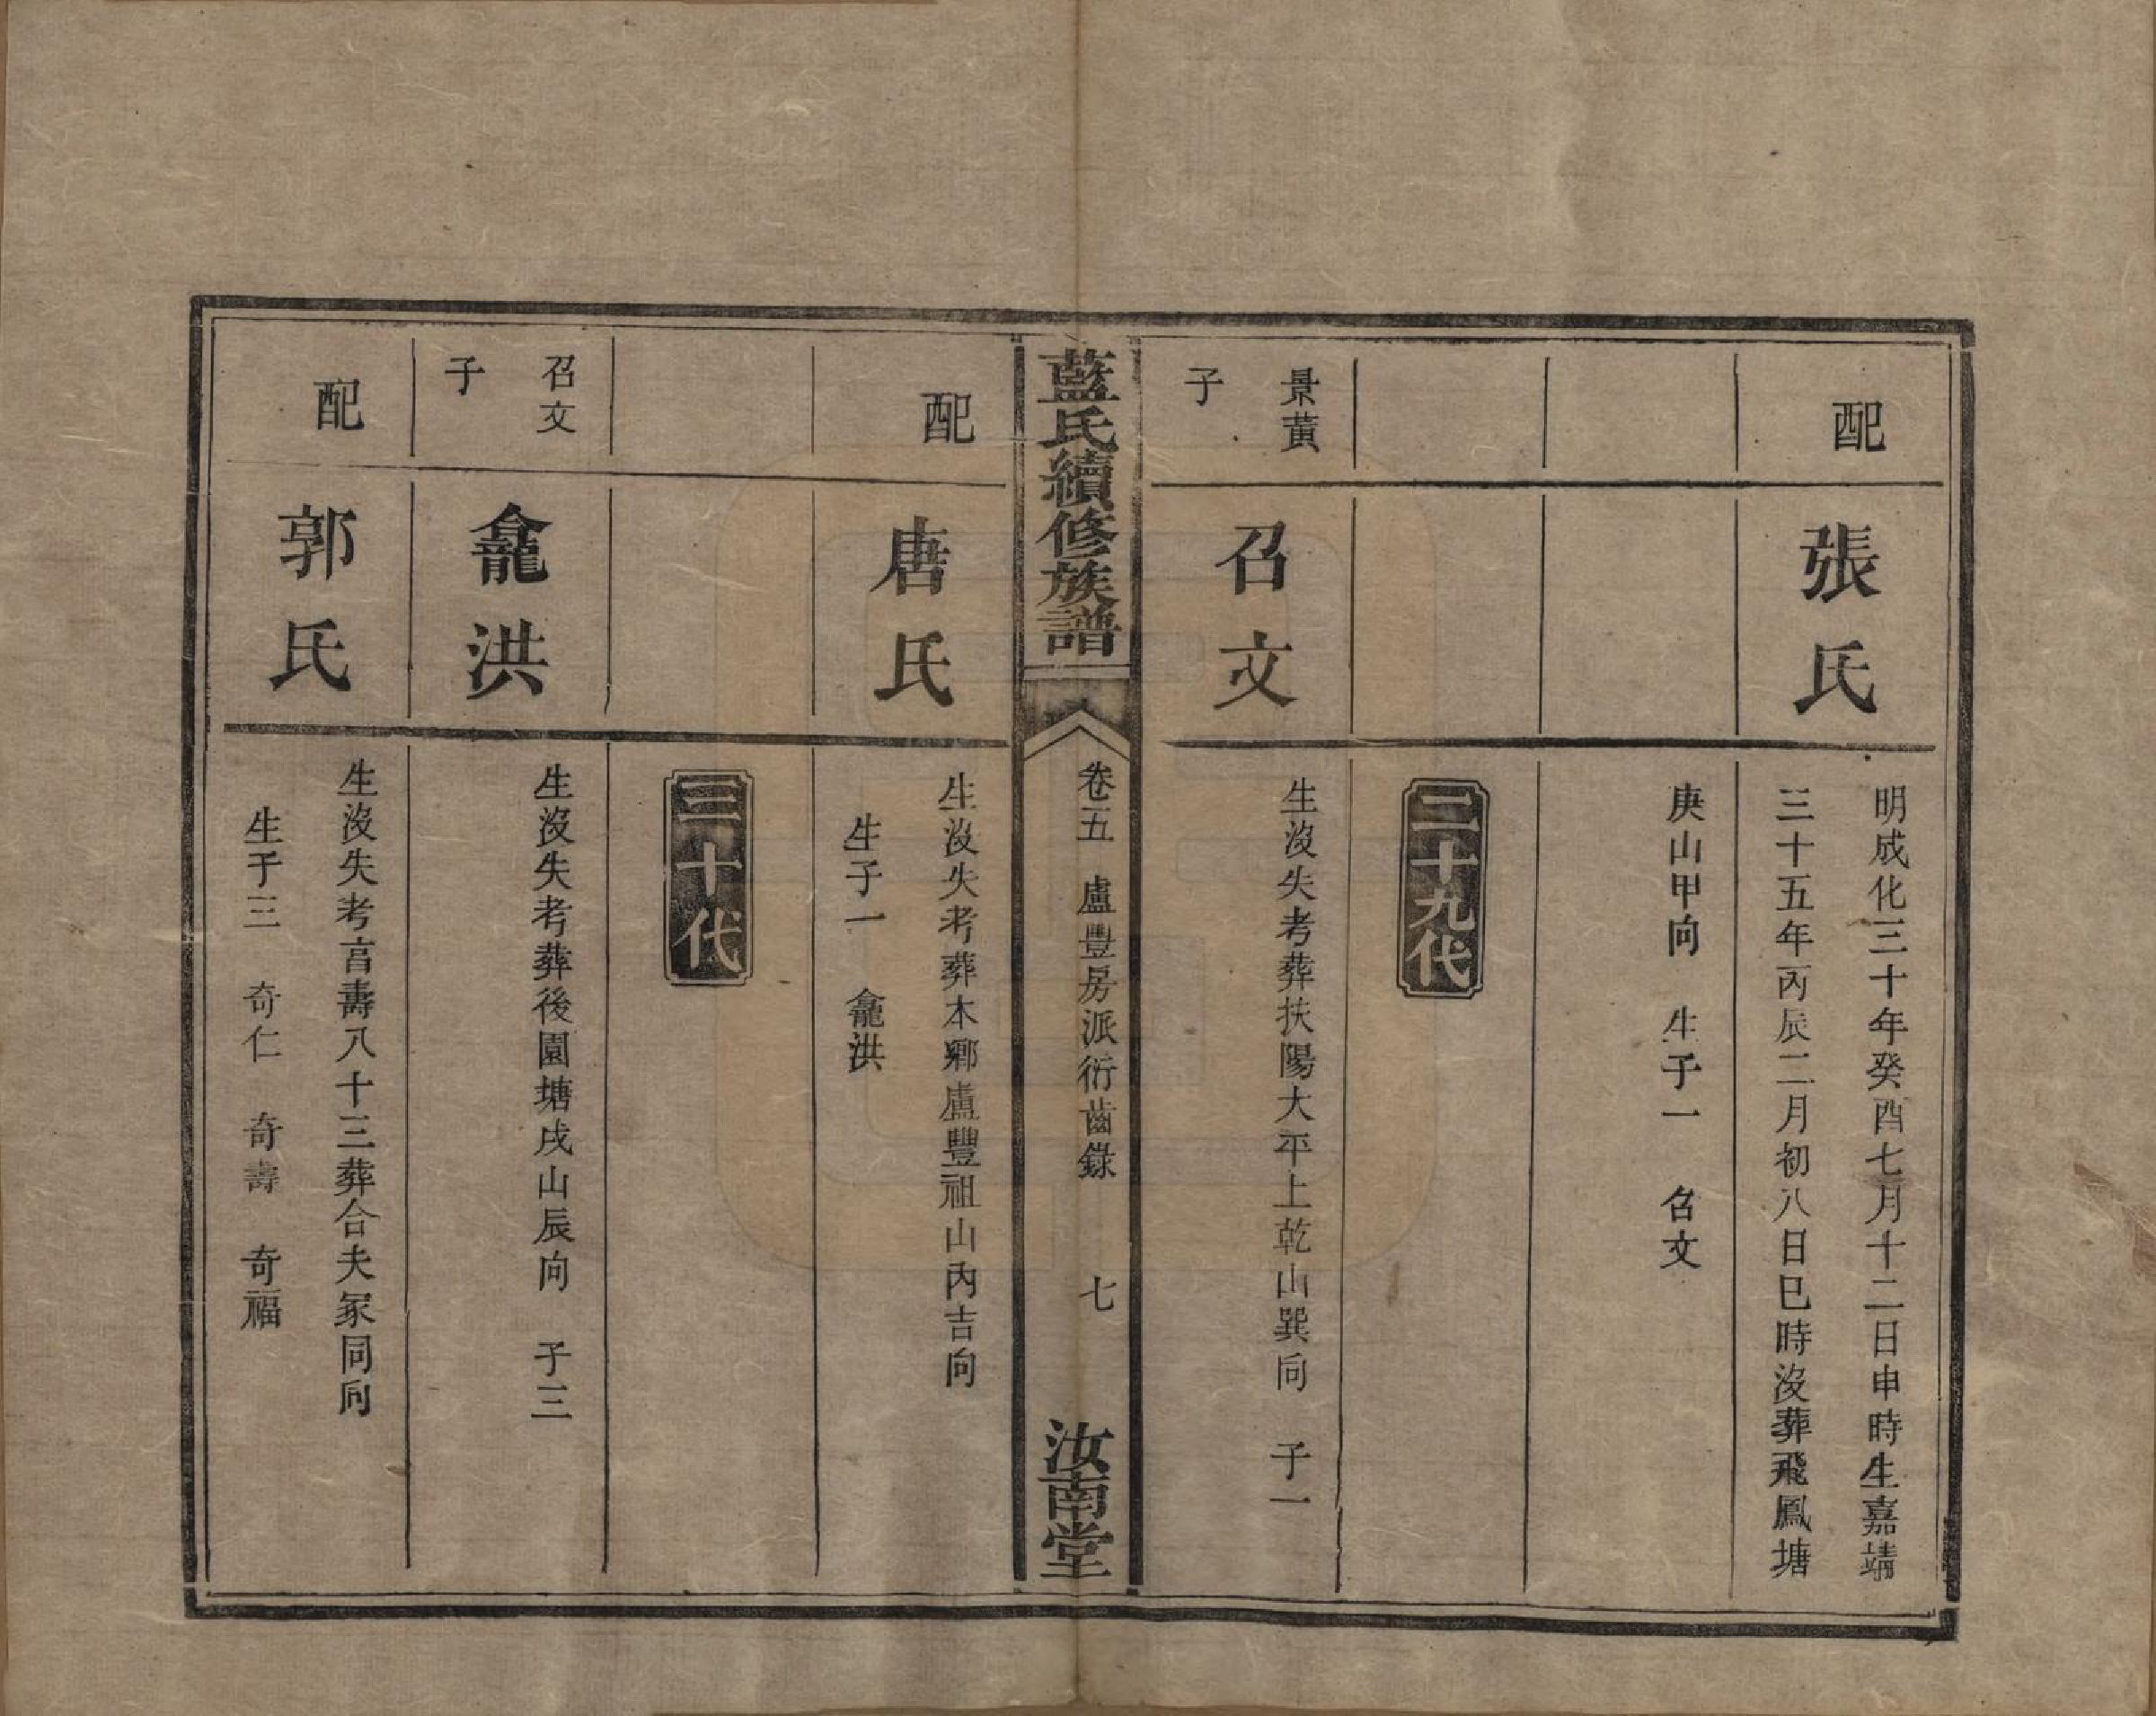 配
張氏
明成化三十年癸酉七月十二日申時生嘉靖
三十五年丙辰二月初八日巳時没葬飛鳳塘
庚山甲向　生子一　召文
二十九代
景黃
子
召文
生沒失考葬扶陽大平上乾山巽向　子一
藍氏續修族譜
卷五　盧豐房派衍齒錄　七
汝南堂
配
唐氏
生沒失考葬本鄉盧豐祖山內吉向
生子一　龕洪
三十代
召文
子
龕洪
生沒失考葬後園塘戌山辰向　子三
配
郭氏
生沒失考言壽八十三葬合夫冢同向
生子三　奇仁　奇壽　奇福